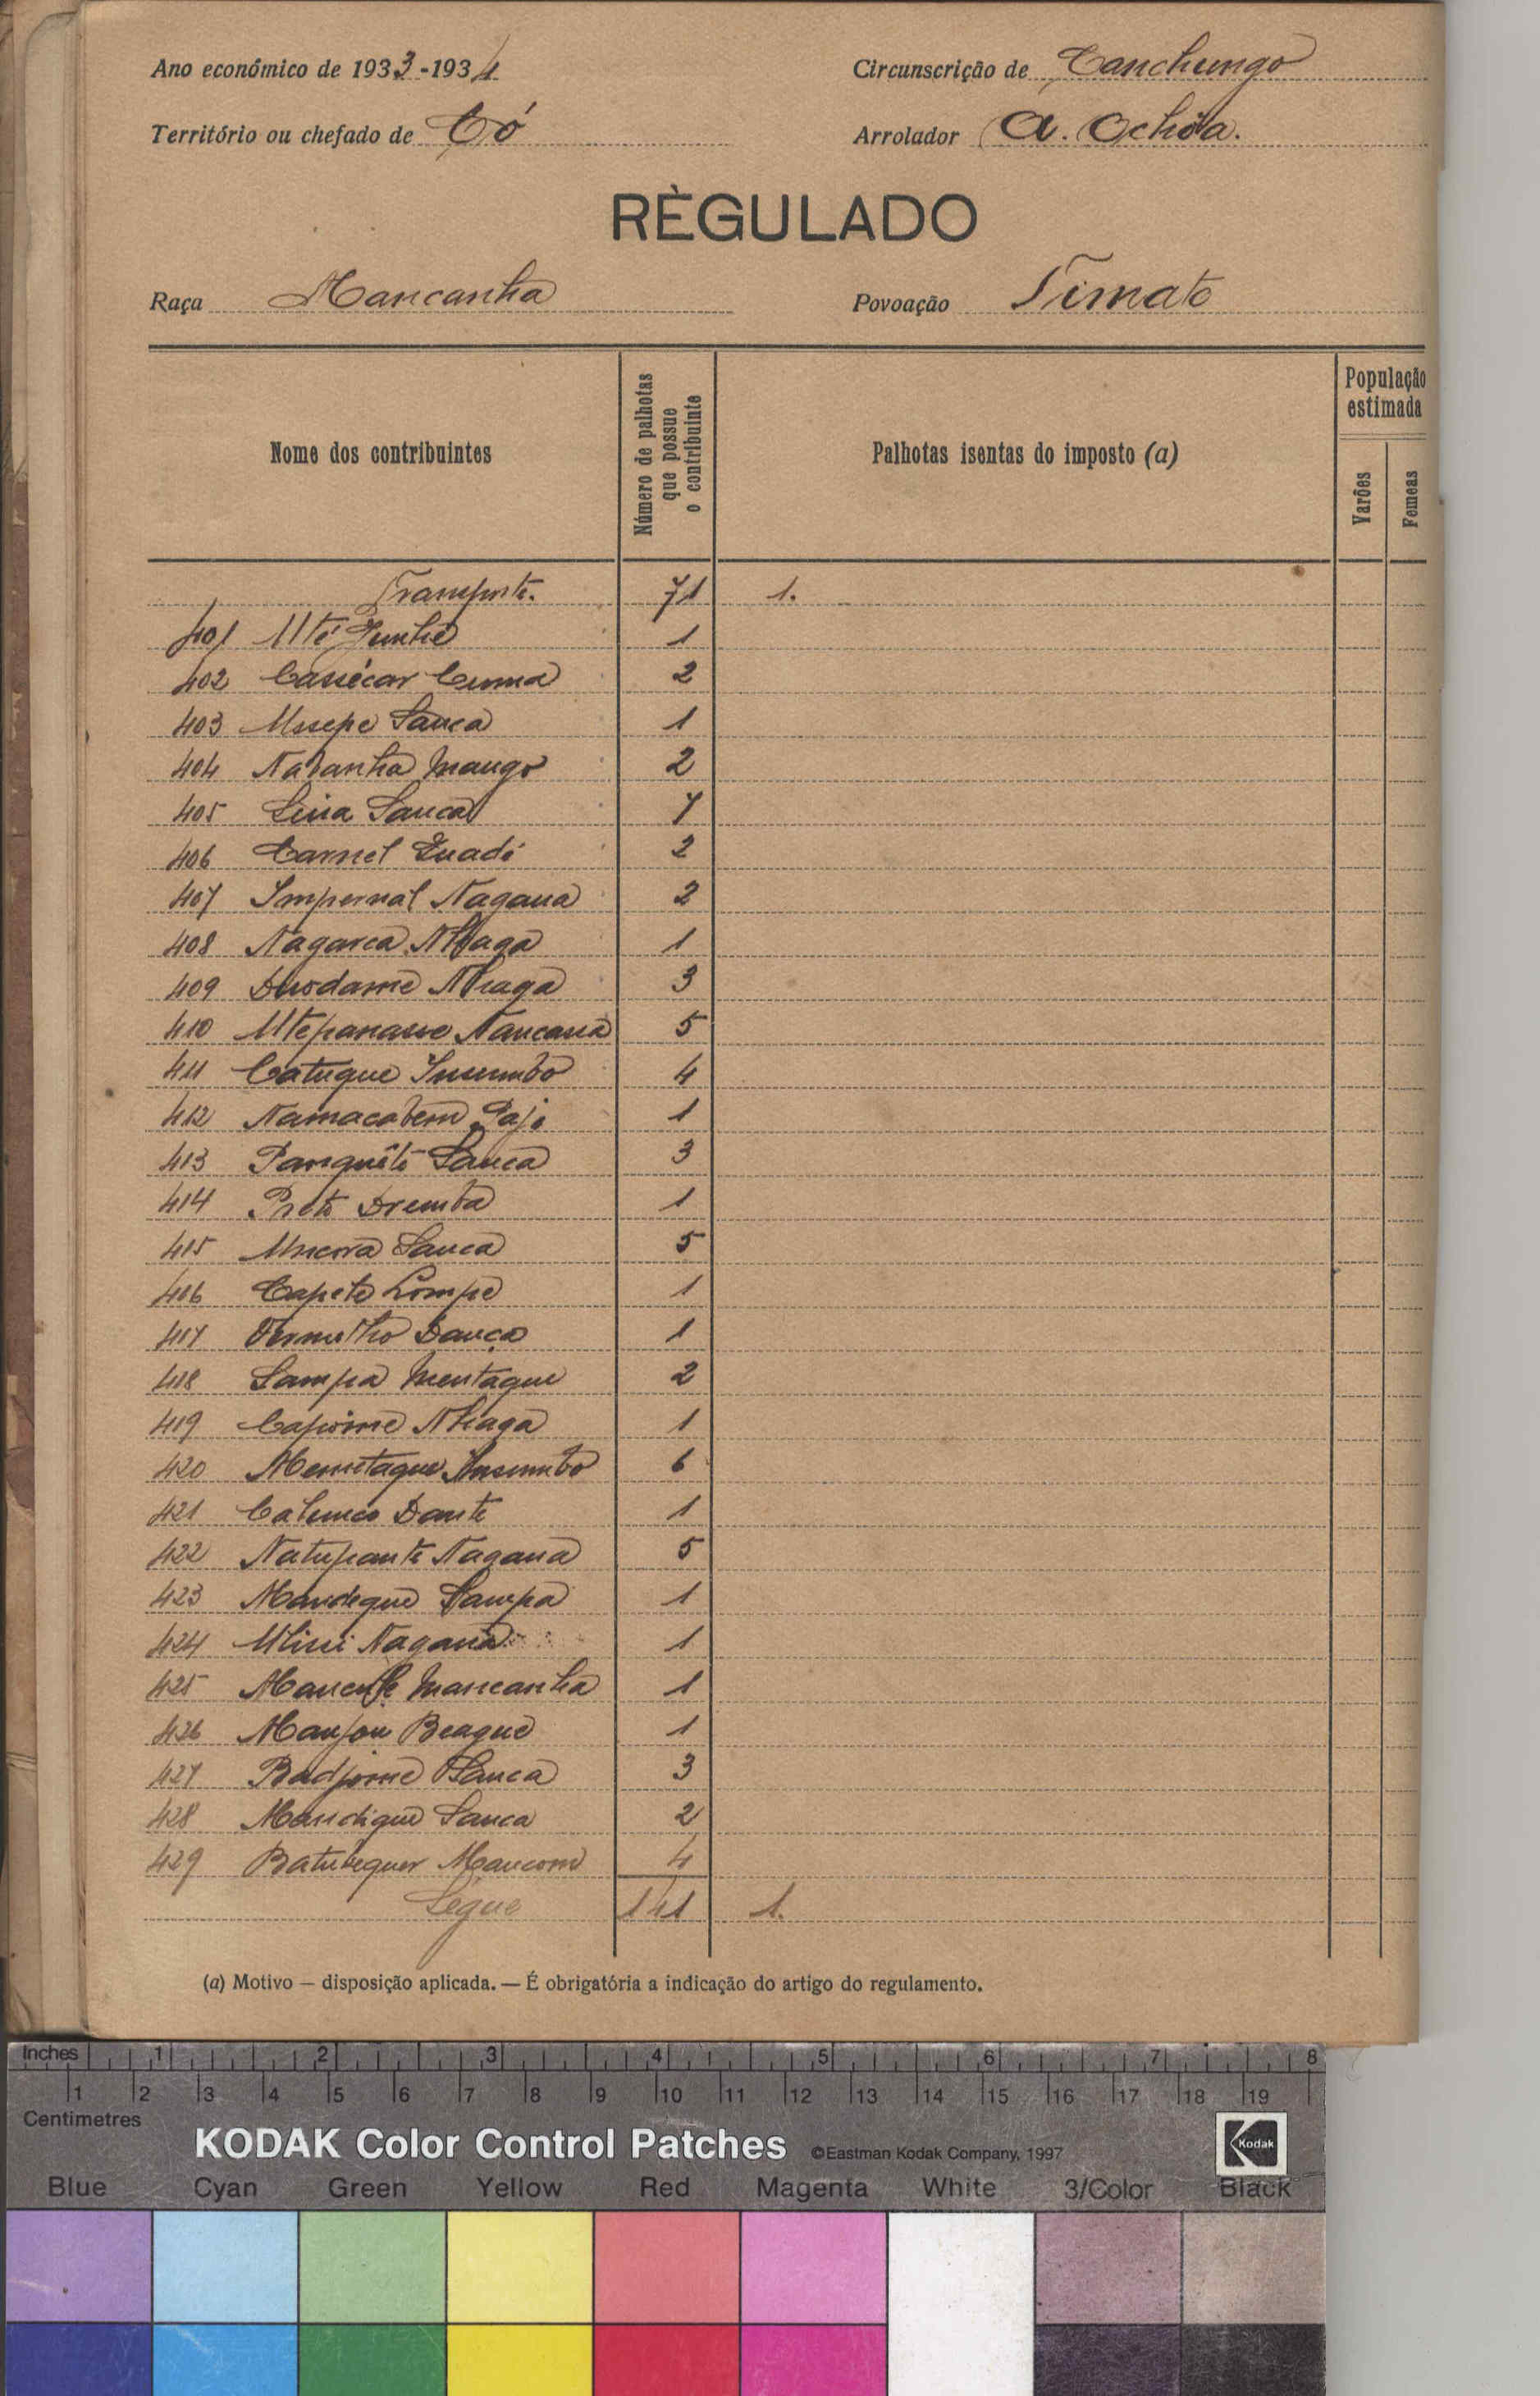 Ano económico de 1933-1934
Circunscrição de Canchungo
Território ou chefado de Có
Arrolador A. Ochôa.
RÈGULADO
Raça Mancanha
Povoação Timato
Nome dos contribuintes
Número de palhotas que possue o contribuinte
Palhotas isentas do imposto (a)
População estimada
Varões
Femeas
Transporte. 71 1.
401 Uté 1
402 Cassécar Cuma 2
403 Ussepe Sanca 1
404 Nabanha Mango 2
405 Lina Sanca 7
406 Carnel 2
407 Impernal Nagana 2
408 Nagarca Nhaga 1
409 Duodame Nhaga 3
410 Utepanasse Nancassa 5
411 Catuque Insumbo 4
412 Namacobem 1
413 Panquêtê Sanca 3
414 Preto Dremba 1
415 Uncora Sanca 5
416 Capete Lompe 1
417 Vermelho Dança 1
418 Sampa Mentague 2
419 Capoime Nhaga 1
420 Menetague Insumbo 6
421 Calunco Dante 1
422 Natupante Nagana 5
423 Mandegue Sampa 1
424 Ulini Nagana 1
425 Mancanha 1
426 Manjou Beague 1
427 Badjome Sanca 3
428 Mandigue Sanca 2
429 Batubequer Mancom 4
Segue 141 1.
(a) Motivo — disposição aplicada. — É obrigatória a indicação do artigo do regulamento.
Inches 1 2 3 4 5 6 7 8
1 2 3 4 5 6 7 8 9 10 11 12 13 14 15 16 17 18 19
Centimetres
KODAK Color Control Patches ©Eastman Kodak Company, 1997 Kodak
Blue Cyan Green Yellow Red Magenta White 3/Color Black